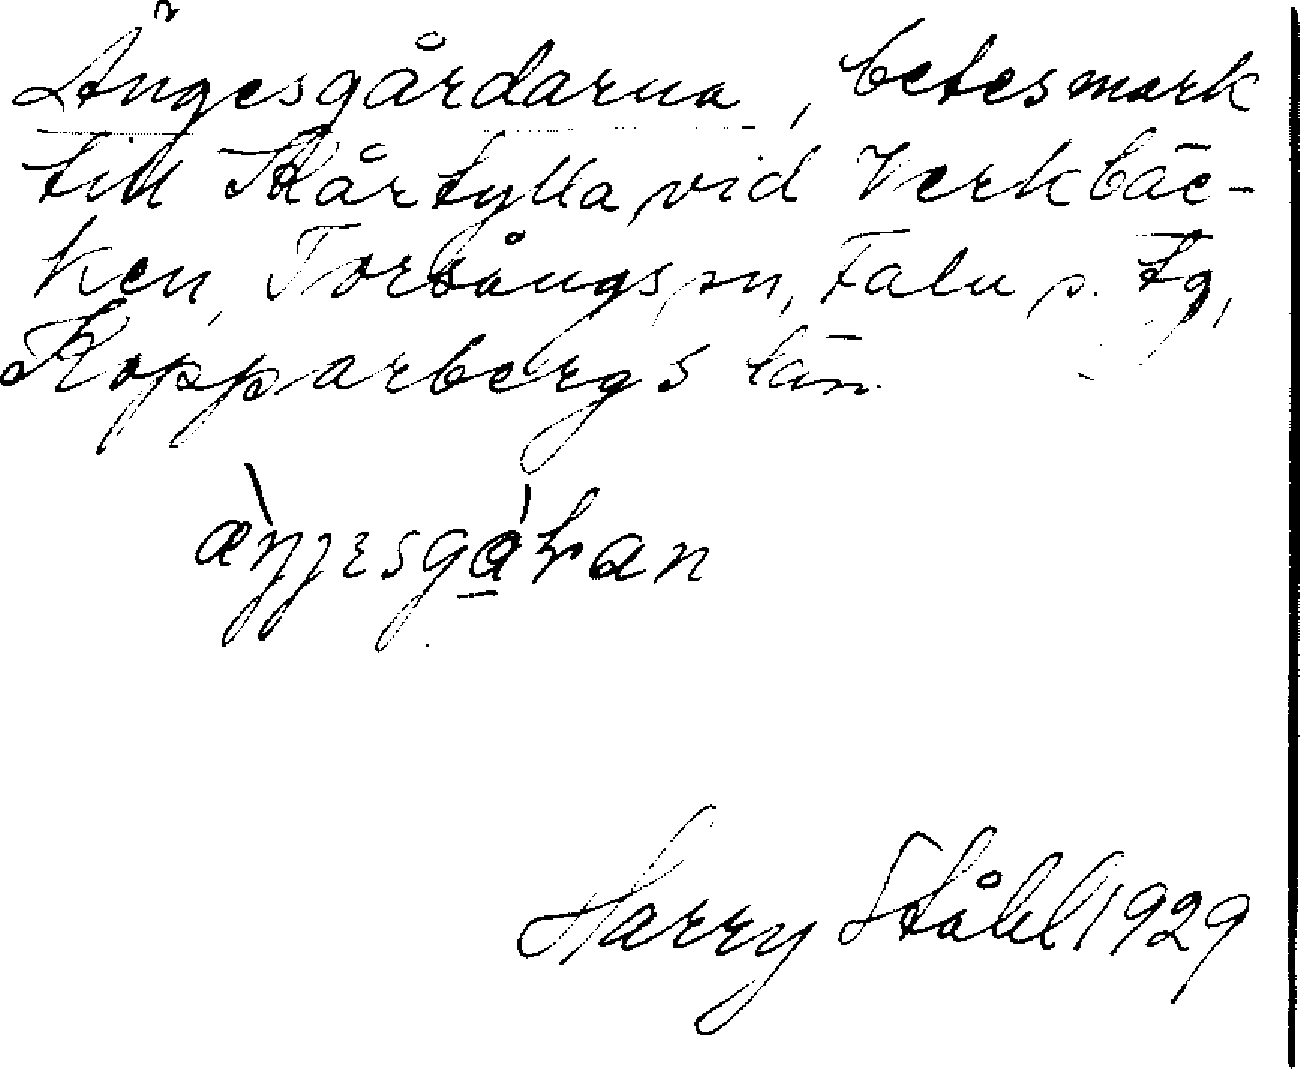 Ängesgårdarna, betesmark
till Kårtylla vid Verkbäc-
ken, Torsångs sn, Falu s. tg,
Kopparbergs län.
Harry Ståhl 1929